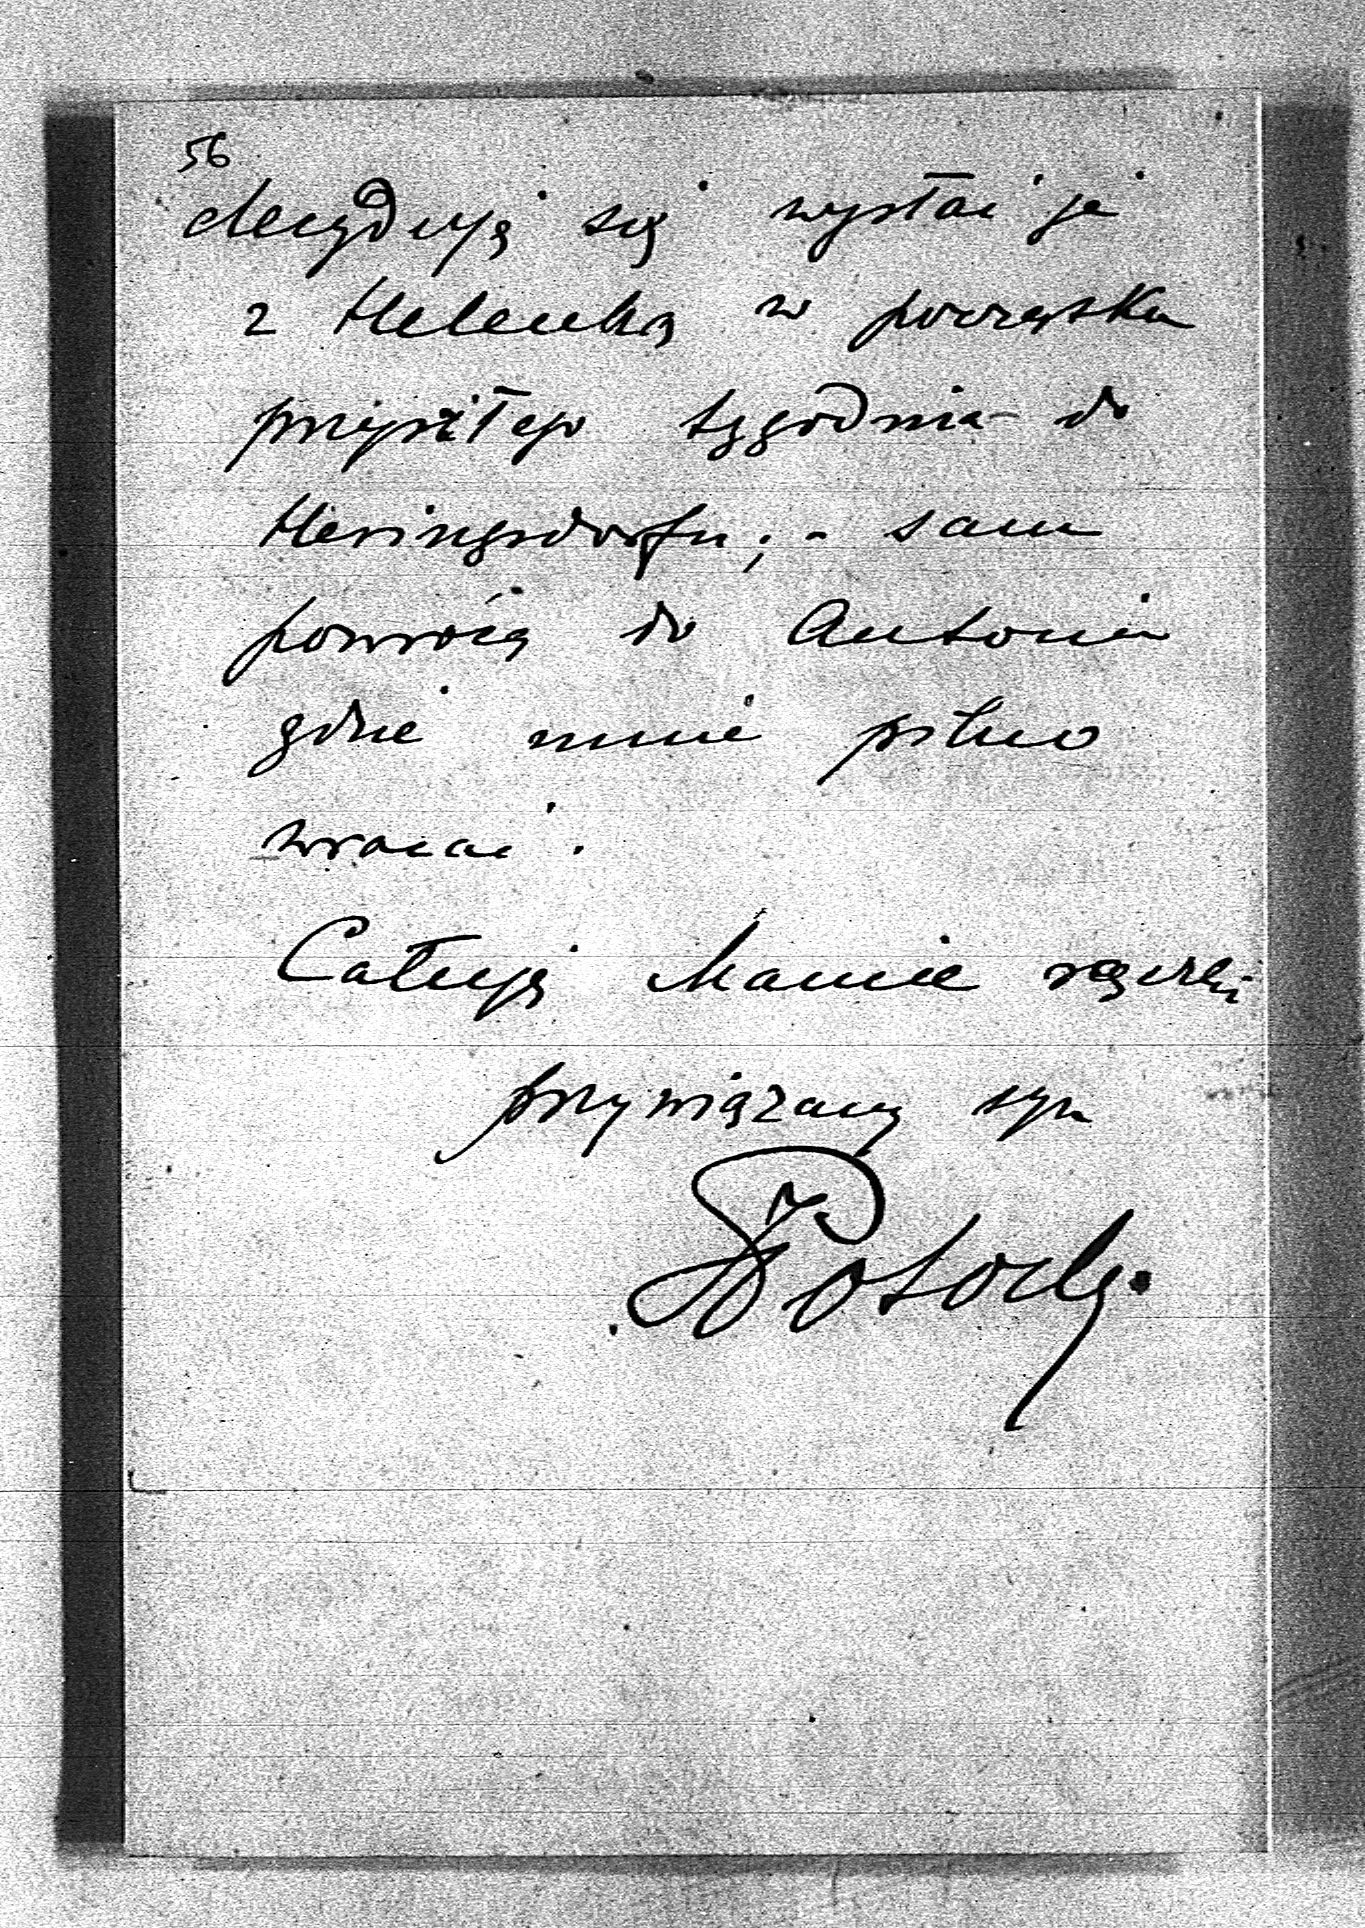 56
decyduję się wysłać je
z Helenką w początku
przyszłego tygodnia do
Heringsdorfu; - sam
powrócę do Antonin
gdzie mnie pilno
wracać.
Całuję Mamie rączki
przywiązany syn
Potocki